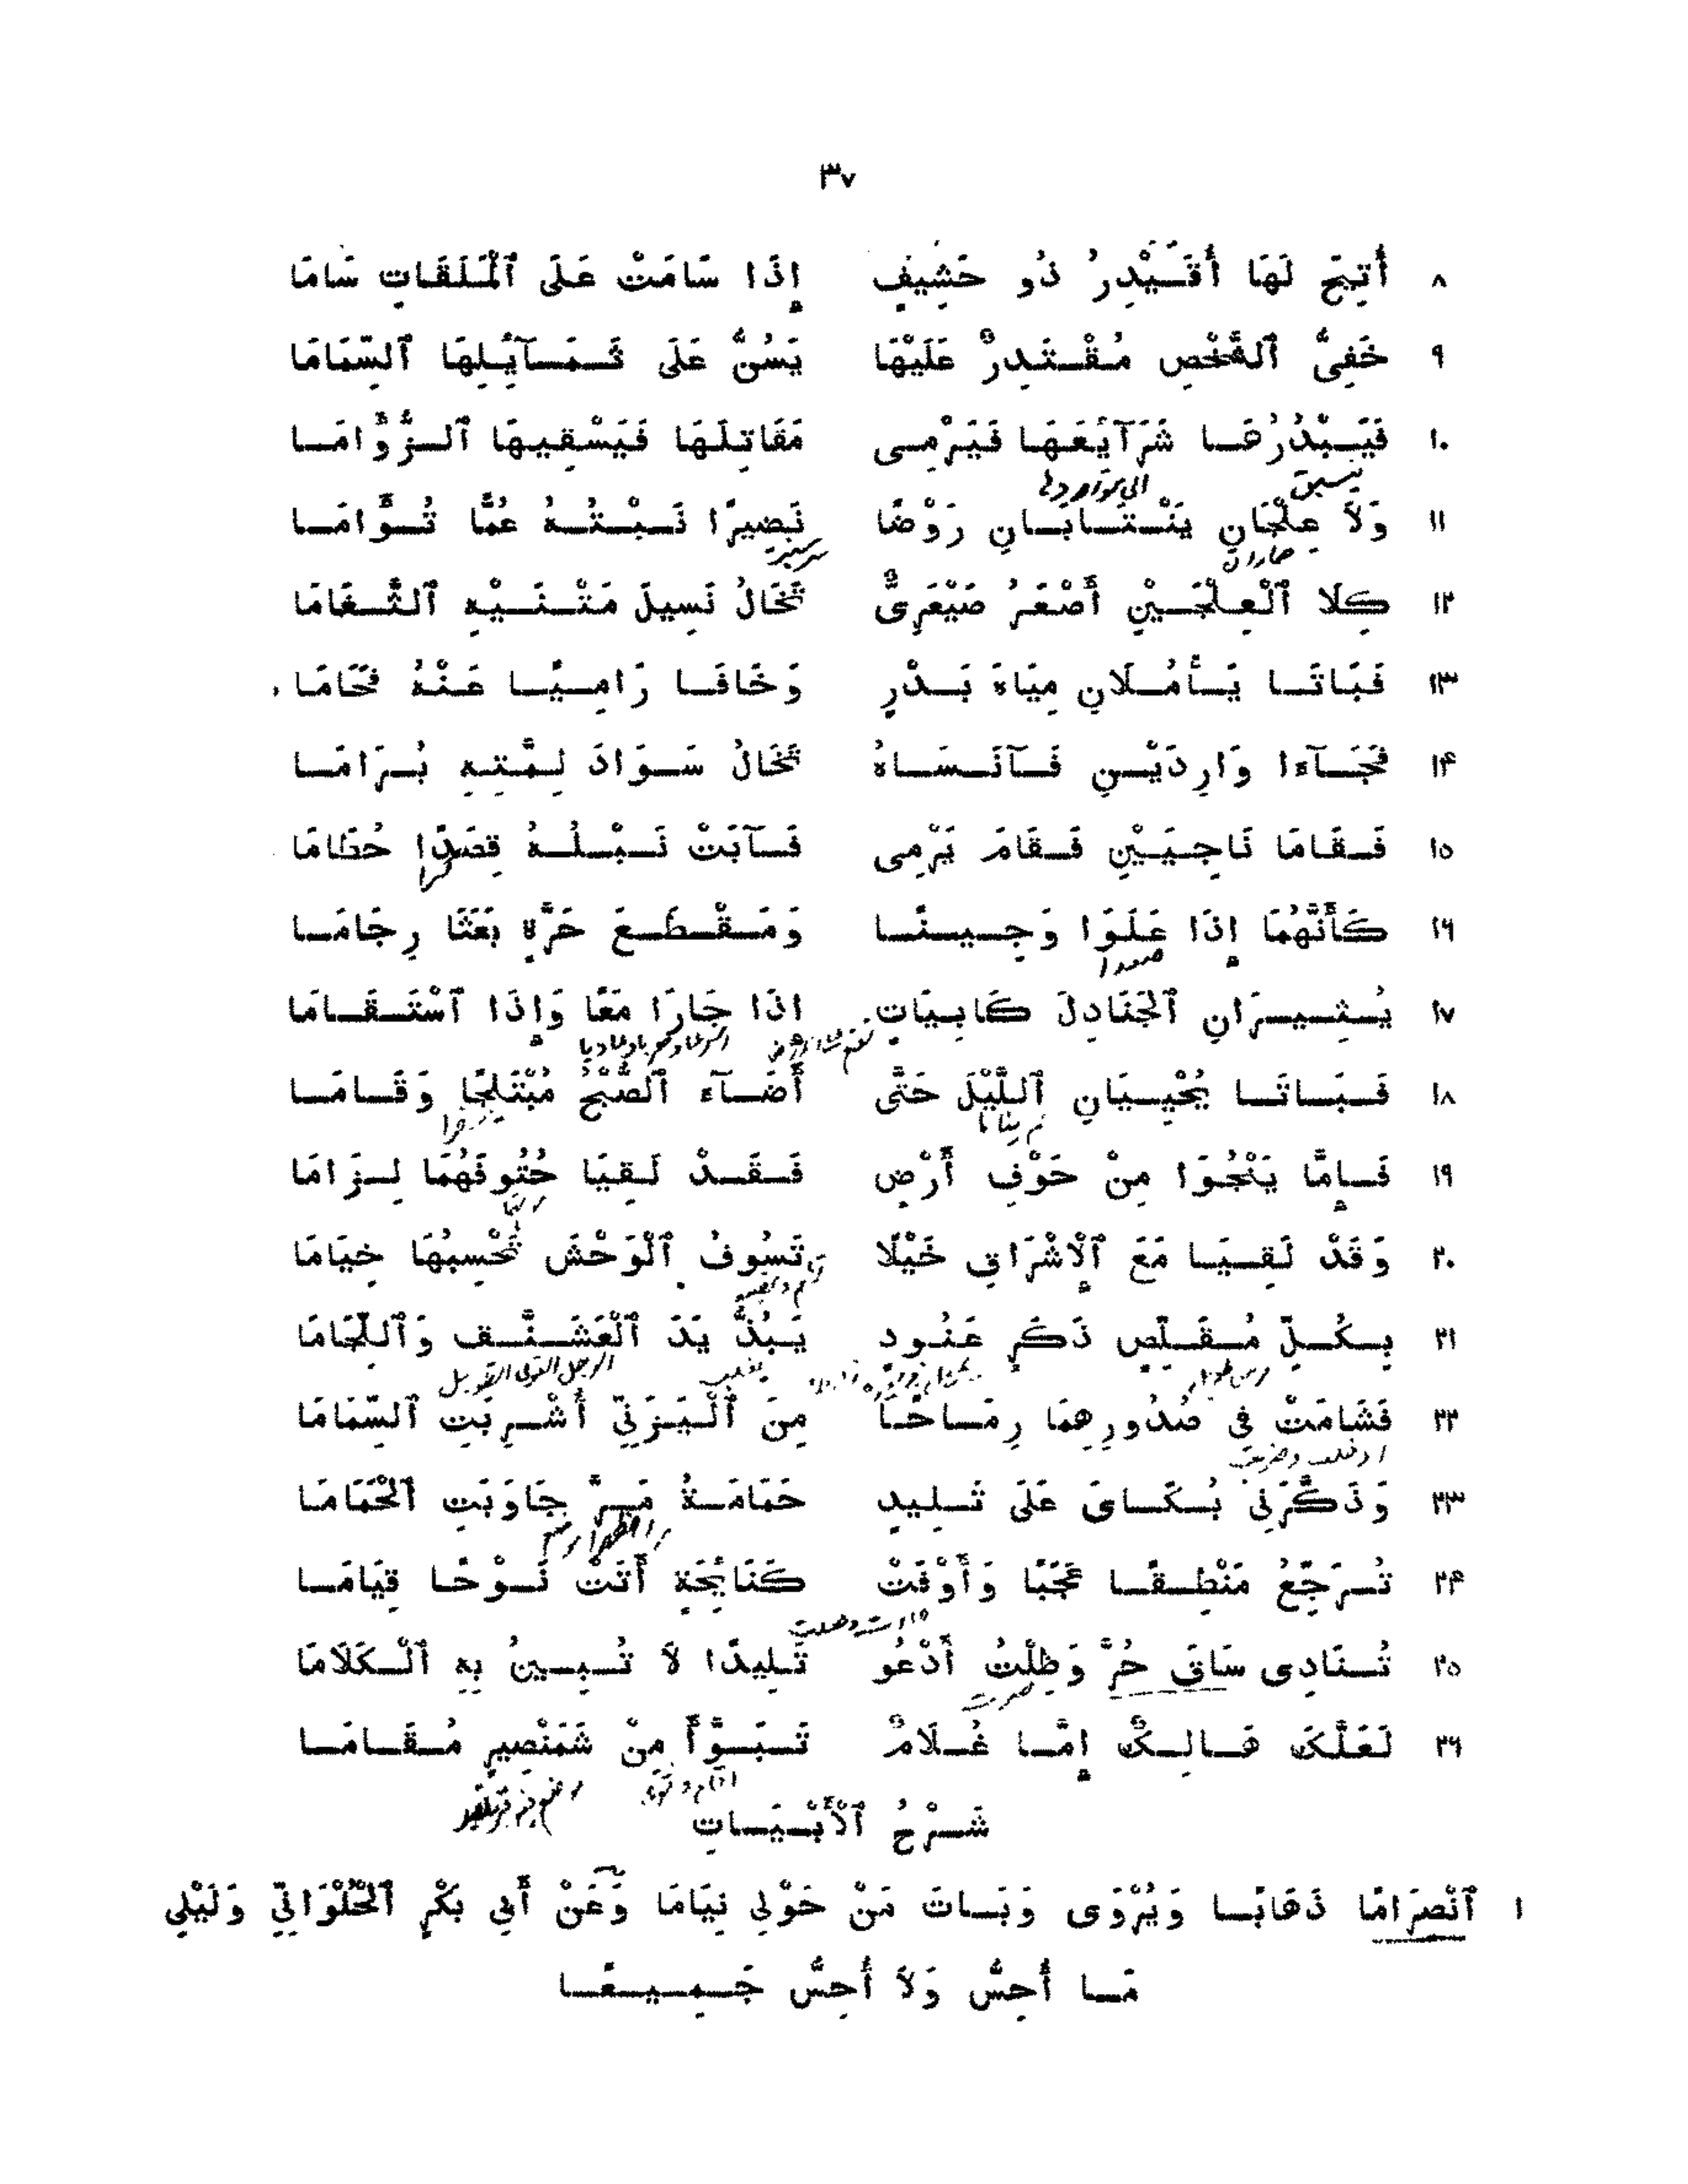 ٣٧
٨ أُتِيحَ لَهَا أُقَيْدِرُ ذُو حَشِيفٍ إِذَا سَامَتْ عَلَى ٱلْمَلَقَاتِ سَامَا
٩ خَفِىُّ ٱلشَّخْصِ مُقْتَدِرٌ عَلَيْهَا يَسُنُّ عَلَى ثَمَآئِلِهَا ٱلسِّمَامَا
١٠ فَيَبْدُرُهَا شَرَآئِعَهَا فَيَرْمِى مَقَاتِلَهَا فَيَسْقِيهَا ٱلزُّؤَامَا
يسبق
١١ وَلَا عِلْجَانِ يَنْتَابَانِ رَوْضًا نَضِيرًا نَبْتُهُ عُمًّا تُؤَامَا
حماران
١٢ كِلَا ٱلْعِلْجَيْنِ أَصْعَرُ صَيْعَرِىٌّ تَخَالُ نَسِيلَ مَتْنَيْهِ ٱلثَّغَامَا
١٣ فَبَاتَا يَأْمُلَانِ مِيَاهَ بَدْرٍ وَخَافَا رَامِيًا عَنْهُ فَحَامَا
١٤ فَجَآءا وَارِدَيْنِ فَآنَسَاهُ تَخَالُ سَوَادَ لِمَّتِهِ بُرَامَا
١٥ فَقَامَا نَاجِيَيْنِ فَقَامَ يَرْمِى فَآبَتْ نَبْلُهُ قِصَدًا حُطَامَا
١٦ كَأَنَّهُمَا إِذَا عَلَوَا وَجِينًا وَمَقْطَعَ حَرَّةٍ بَعَثَا رِجَامَا
صعدا
١٧ يُثِيرَانِ ٱلْجَنَادِلَ كَابِيَاتٍ إِذَا جَارَا مَعًا وَإِذَا ٱسْتَقَامَا
١٨ فَبَاتَا يُحْيِيَانِ ٱللَّيْلَ حَتَّى أَضَآءَ ٱلصُّبْحُ مُبْتَلِجًا وَقَامَا
١٩ فَإِمَّا يَنْجُوَا مِنْ خَوْفِ أَرْضٍ فَقَدْ لَقِيَا حُتُوفَهُمَا لِزَامَا
٢٠ وَقَدْ لَقِيَا مَعَ ٱلْإِشْرَاقِ خَيْلًا تَسُوفُ ٱلْوَحْشَ تَحْسِبُهَا خِيَامَا
٢١ بِكُلِّ مُقَلِّصٍ ذَكَرٍ عَنُودٍ يَبُذُّ يَدَ ٱلْعَشَنَّفِ وَٱللِّجَامَا
يغلب الرجل القوى الطويل
٢٢ فَشَامَتْ فِى صُدُورِهِمَا رِمَاحًا مِنَ ٱلْيَزَنِيِّ أُشْرِبَتِ ٱلسِّمَامَا
٢٣ وَذَكَّرَنِى بُكَاىَ عَلَى تَلِيدٍ حَمَامَةُ مَرَّ جَاوَبَتِ ٱلْحَمَامَا
٢٤ تُرَجِّعُ مَنْطِقًا عَجَبًا وَأَوْفَتْ كَنَائِحَةٍ أَتَتْ نَوْحًا قِيَامَا
٢٥ تُنَادِى سَاقَ حُرَّ وَظِلْتُ أَدْعُو تَلِيدًا لَا تُبِينُ بِهِ ٱلْكَلَامَا
صرت
٢٦ لَعَلَّكَ هَالِكٌ إِمَّا غُلَامٌ تَبَوَّأَ مِنْ شَمَنْصِيرٍ مُقَامَا
شَرْحُ ٱلْأَبْيَاتِ
١ ٱنْصِرَامًا ذَهَابًا وَيُرْوَى وَبَاتَ مَنْ حَوْلِى نِيَامَا وَعَنْ أَبِى بَكْرٍ ٱلْحُلْوَانِيِّ وَلَيْلِى
مَا أُحِسُّ وَلَا أُحِسُّ جَمِيعًا